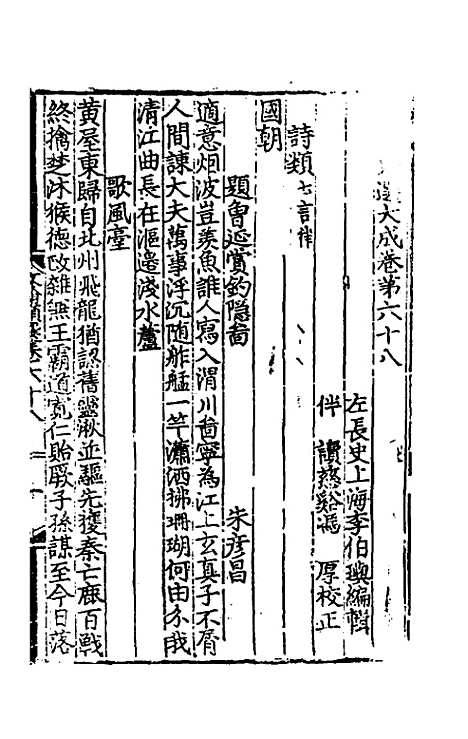 大成卷第六十八
左長史上海李伯璵編輯
伴 讀慈谿馮 原校正
詩類七言律
國朝
題曹延賞釣隱啚 朱彦昌
適意烟波豈羨魚誰人寫入渭川啚寧為江上玄真子不屑
人間諫大夫萬事浮沉随舴艋一竿瀟洒拂珊瑚何由分我
清江曲長在漚邉淺水蘆
歌風臺
黄屋東歸自北州飛龍猶認舊靈湫並驅先獲秦亡鹿百戰
終擒楚沐猴德政雜無王霸道寛仁貽厥子孫謀至今日落